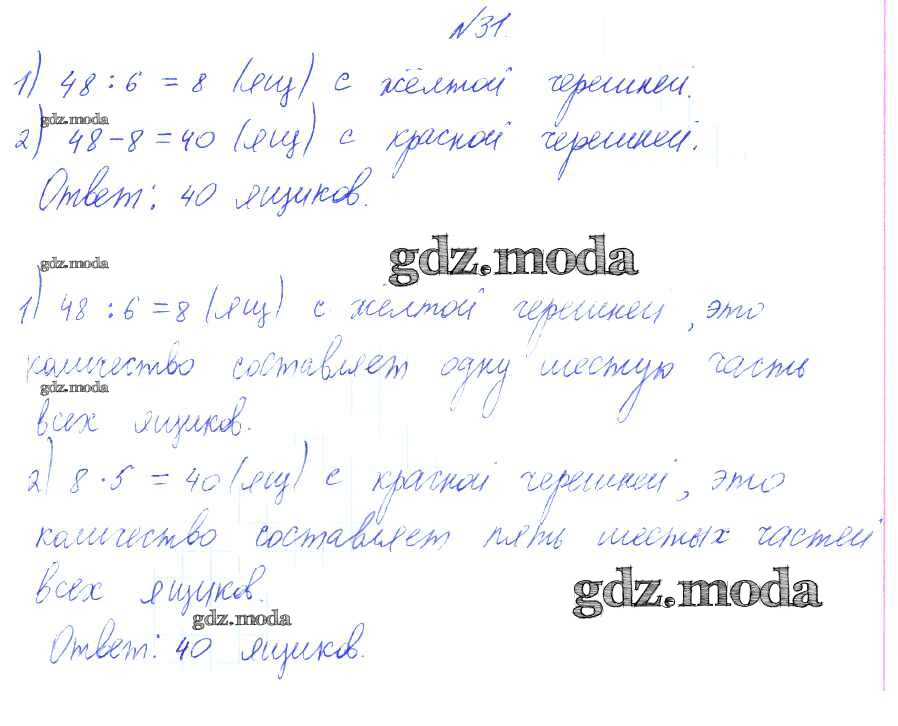 №31.
1) 48 : 6 = 8 (ящ) с жёлтой черешней.
gdz.moda
2) 48 - 8 = 40 (ящ) с красной черешней.
Ответ: 40 ящиков.
gdz.moda gdz.moda
1) 48 : 6 = 8 (ящ) с жёлтой черешней, это
количество составляет одну шестую часть
gdz.moda
всех ящиков.
2) 8 · 5 = 40 (ящ) с красной черешней, это
количество составляет пять шестых частей
всех ящиков. gdz.moda
gdz.moda
Ответ: 40 ящиков.